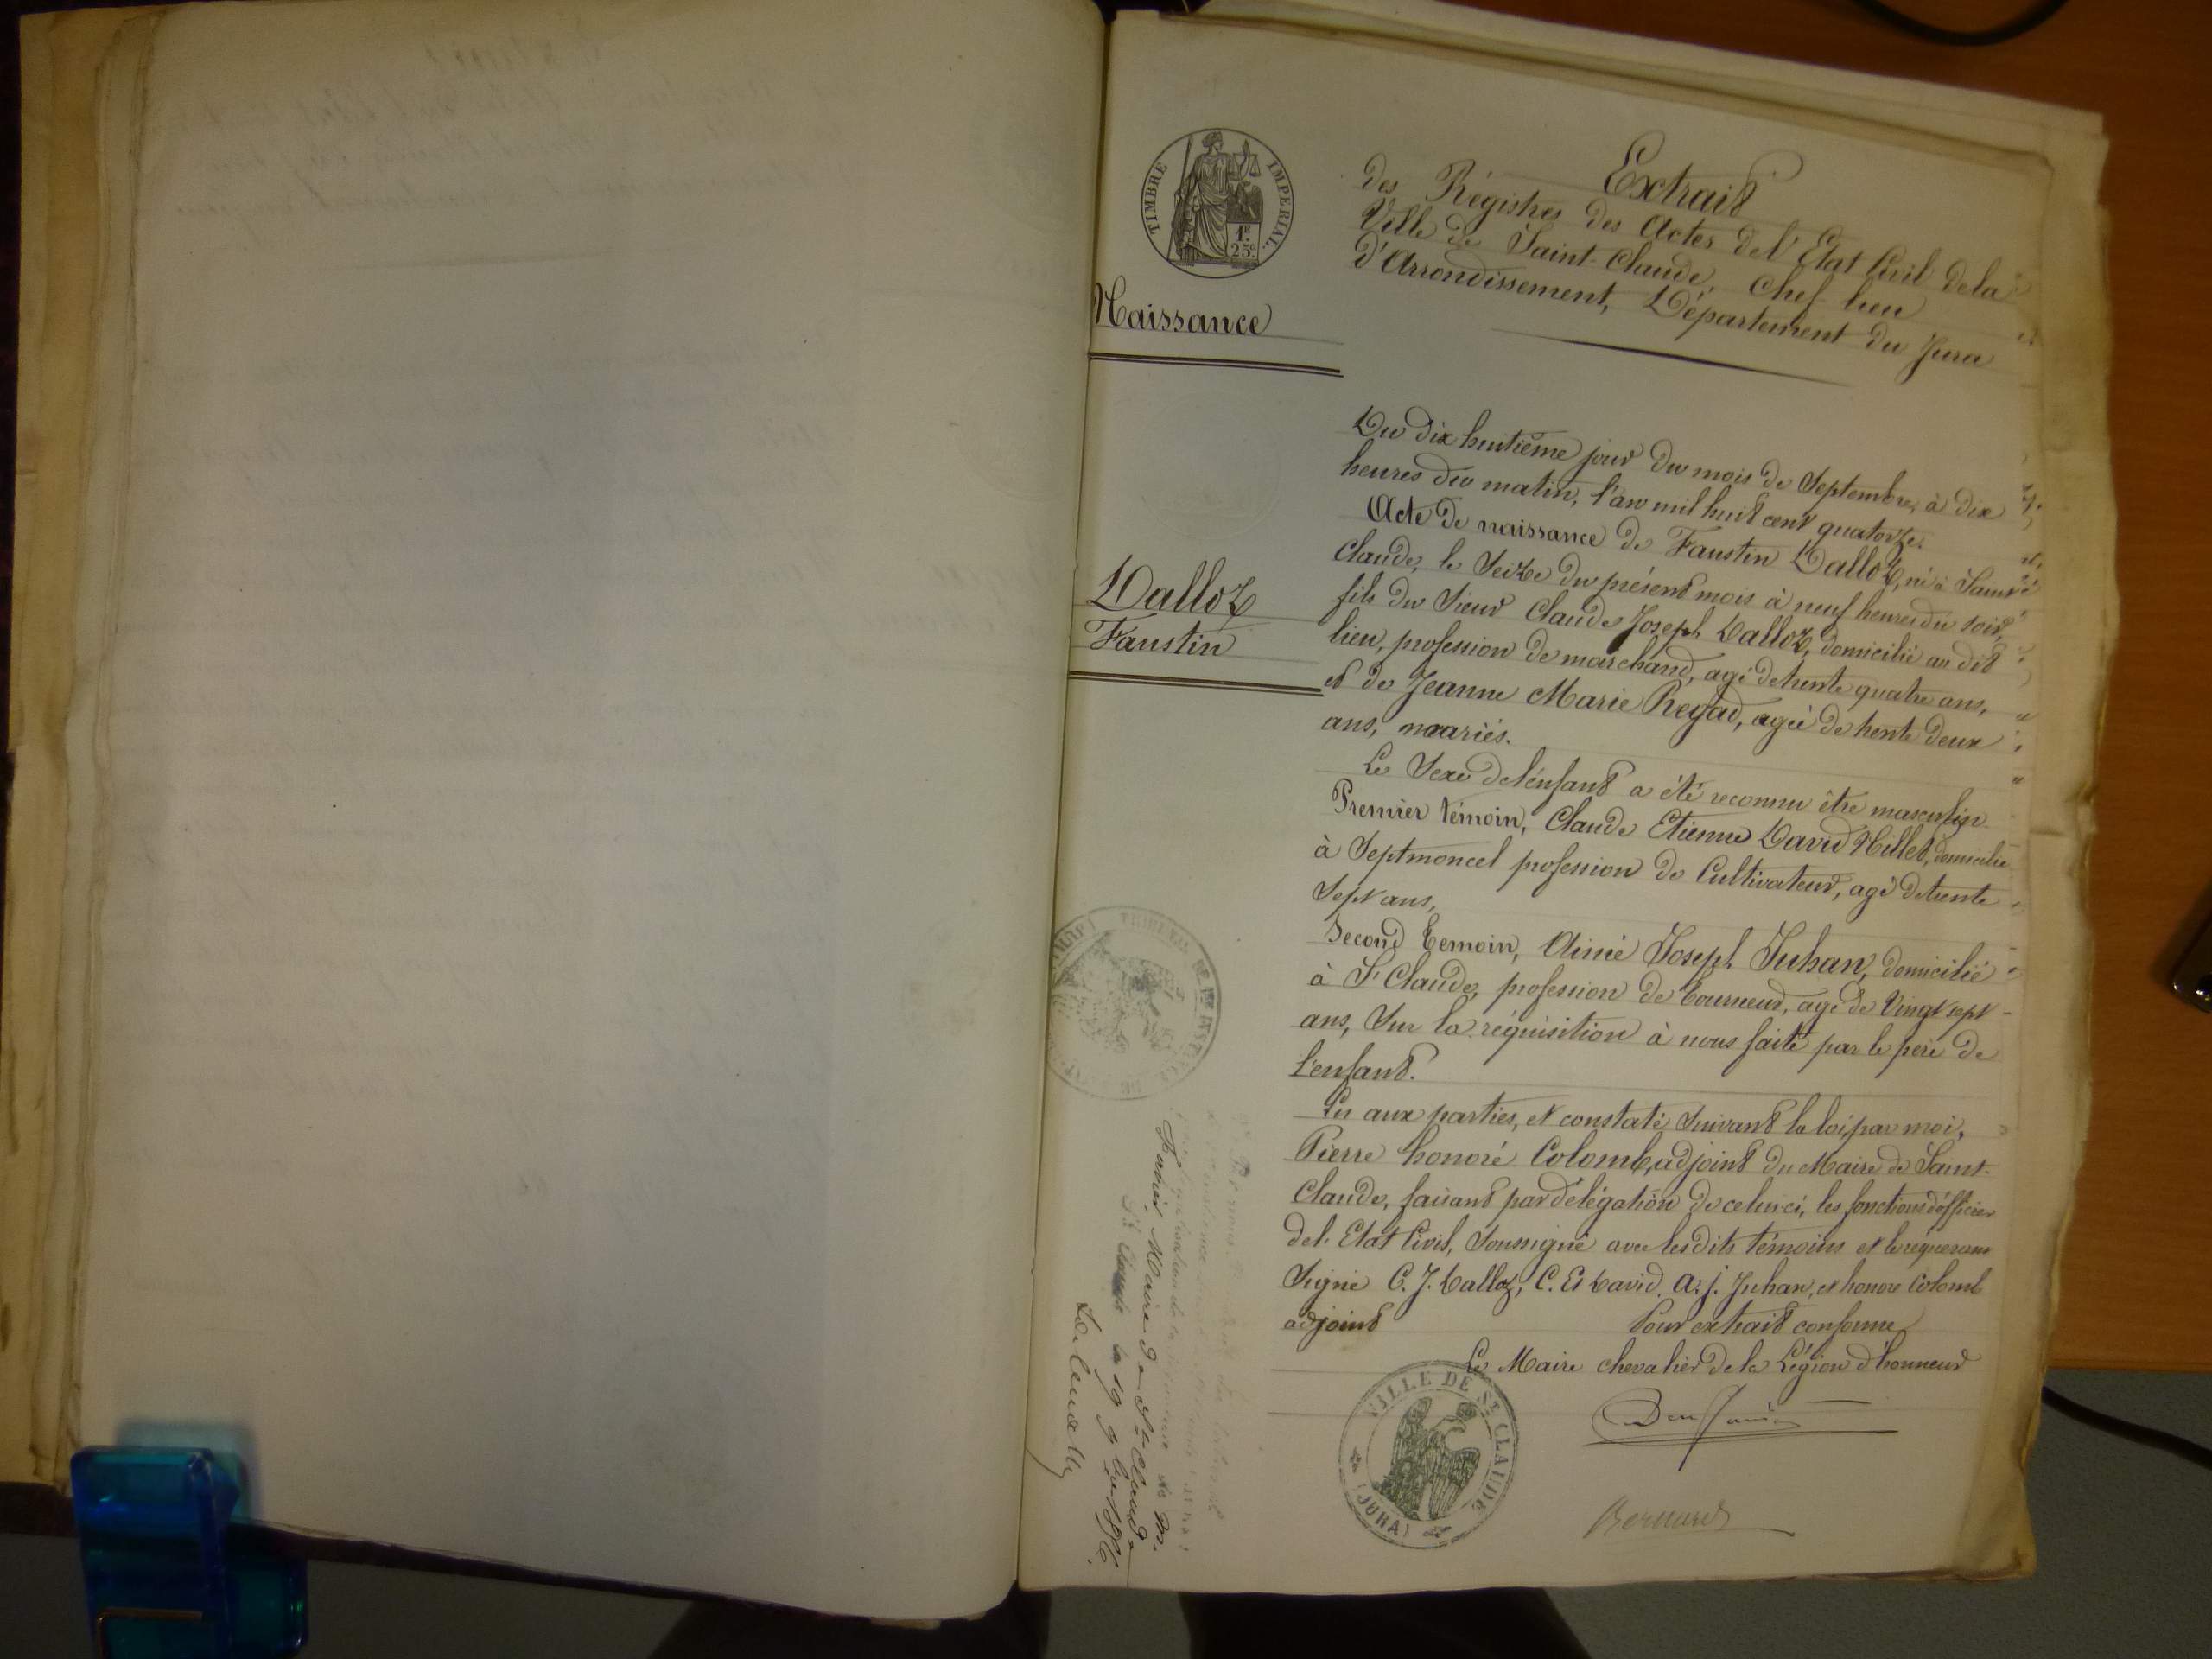 TIMBRE IMPERIAL.
1F.
25c.
Naissance
Dalloz
Faustin
Extrait
des Régistres des Actes del'Etat Civil dela
Ville de Saint-Claude, Chef lieu
d'Arrondissement, Département du Jura
Du dix huitième jour du mois de Septembre, à dix
heures du matin, l'an mil huit cent quatorze.
Acte de naissance de Faustin Dalloz, né à Saint
Claude, le Seize du présent mois à neuf heures du soir,
fils du Sieur Claude Joseph Dalloz, domicilié au dit
lieu, profession de marchand, agé detrente quatre ans,
et de Jeanne Marie Regad, agée de trente deux
ans, mariés.
Le Sexe del'enfant a été reconnu être masculin
Premier témoin, Claude Etienne David Nillet, domicilié
à Septmoncel profession de Cultivateur, agé detrente
Sept ans,
Second temoin, Aimé Joseph Juhan, domicilié
à St Claude, profession de tourneur, agé de Vingt sept
ans, Sur la réquisition à nous faite par le père de
l'enfant.
Lu aux parties, et constaté Suivant la loi, par moi,
Pierre honoré Colomb, adjoint du Maire de Saint-
Claude, faisant par délégation de celui-ci, les fonctions d'officier
del'Etat Civil, Soussigné avec lesdits témoins et le réquérant
Signé C. J. Dalloz, C. Et David. A. j. Juhan, et honoré Colomb
adjoint
Pour extrait conforme
Le Maire chevalier de la Légion d'honneur
VILLE DE St CLAUDE
(JURA)
Bernard
TRIBUNAL DE 1re INSTANCE
Maire de St Claude
St Claude le 19 9bre 1866